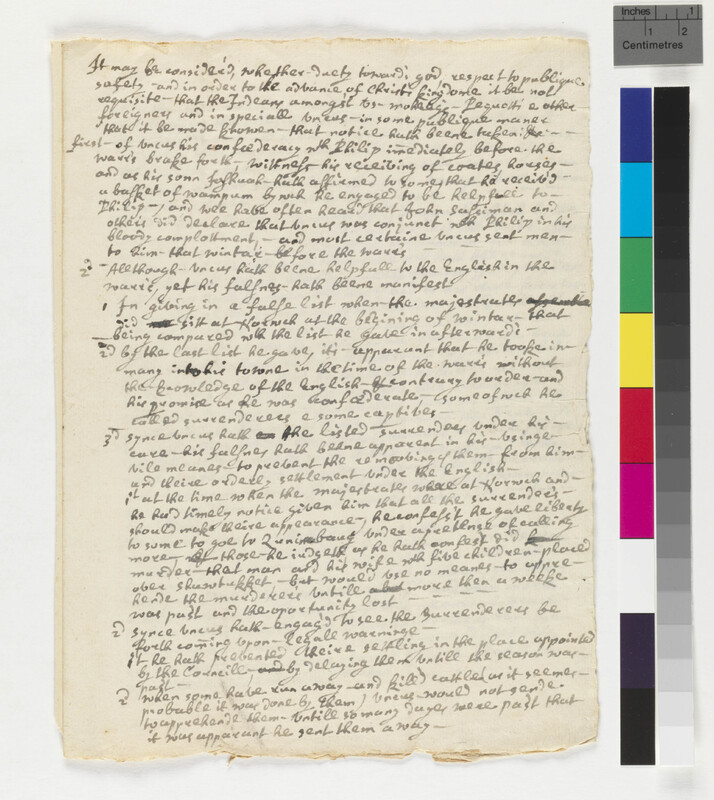 Inches 1
1 2
Centimetres
It may be consider'd, whether duety towards god, respect to publique
safety and in order to the advance of Christs kingdome it be not
requisite that the Indeans amongst us moheegs Pequetts e other
foreigners and in speciall Uncus in some publique maner
that it be made knowen that notice hath beene taken
first of Uncus his confœderacy wth Philip immediately before the
warrs brake forth wittness his receiving of coates horses
and as his sonn hath affirmed to some that he receiv'd
a basket of wampum by wch he engaged to be helpfull to
Philip, and wee have often heard that John Sassiman and
others did declare that Uncus was conjunct wth Philip in his
bloody complottment, and most certaine Uncus sent men
to him that wintar before the warrs
2ly Although Uncus hath beene helpfull to the English in the
warrs, yet his falsnes hath beene manifest
1 In giving in a false list when the majestrates
did sitt at Norwch at the begining of wintar that
being compared wth the list he gave in afterwards
2d by the last list he gave, its apparant that he tooke in
many into his towne in the time of the warrs without
the knowledge of the English contrary to order and
his promise as he was confœderate, some of wch he
called surrenderers e some captives
3d synce Uncus hath the listed surrenders under his
care his falsnes hath beene apparent in his usinge
vile meanes to prevent the remooving of them from him
and theire orderly settlement under the English
1st at the time when the majestrates where at Norwch and
he had timely notice given him that all the surrenders
should make theire appearance, he confest he gave liberty
to some to goe to Quinibaug under a pretense of calling
more those he judgeth as he hath confest did
murder that man and his wife wth five children placed
over Showtukket but would use no means to appre
hende the murderers untill more then a weeke
was past and the oportunity lost
2 synce Uncus hath engag'd to see the surrenderers be
forth coming upon legall warninge
1t he hath prevented theire settling in the place appointed
by the Councill by delaying them untill the season was
past
2 when some have run away and killd cattle as it seemes
probable it was done by them, Uncus would not sende
to apprehende them untill so many dayes were past that
it was apparant he sent them away